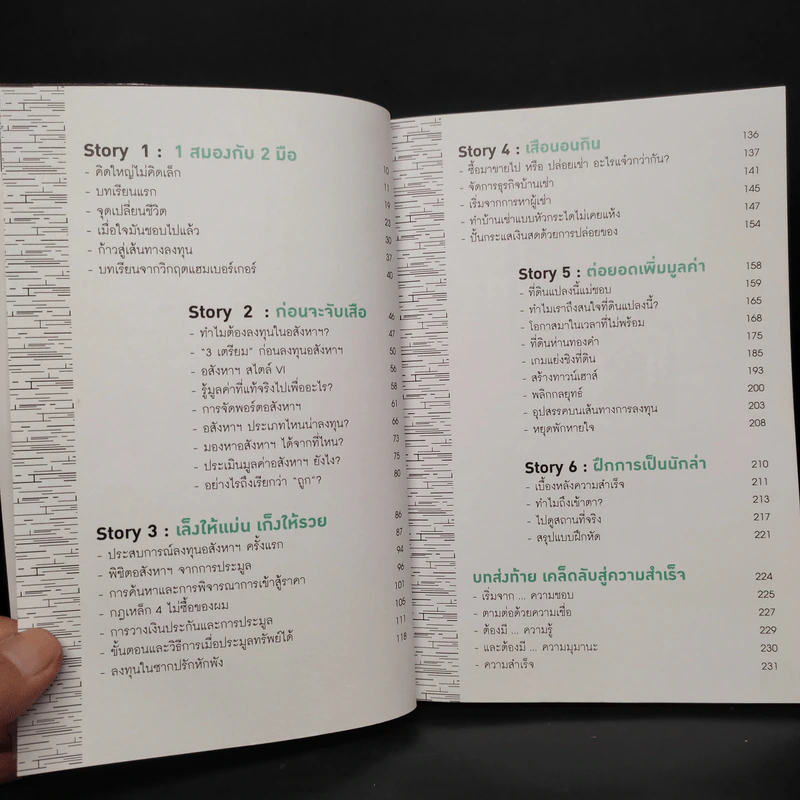 Story 1 : 1 สมองกับ 2 มือ
- คิดใหญ่ไม่คิดเล็ก 10
- บทเรียนแรก 14
- จุดเปลี่ยนชีวิต 19
- เมื่อใจมันชอบไปแล้ว 23
- ก้าวสู่เส้นทางลงทุน 30
- บทเรียนจากวิกฤตแฮมเบอร์เกอร์ 37
40
Story 2 : ก่อนจะจับเสือ 46
- ทำไมต้องลงทุนในอสังหาฯ? 47
- "3 เตรียม" ก่อนลงทุนอสังหาฯ 50
- อสังหาฯ สไตล์ VI 56
- รู้มูลค่าที่แท้จริงไปเพื่ออะไร? 58
- การจัดพอร์ตอสังหาฯ 61
- อสังหาฯ ประเภทไหนน่าลงทุน? 66
- มองหาอสังหาฯ ได้จากที่ไหน? 73
- ประเมินมูลค่าอสังหาฯ ยังไง? 75
- อย่างไรถึงเรียกว่า "ถูก"? 80
Story 3 : เล็งให้แม่น เก็งให้รวย 86
- ประสบการณ์ลงทุนอสังหาฯ ครั้งแรก 87
- พิชิตอสังหาฯ จากการประมูล 94
- การค้นหาและการพิจารณาการเข้าสู้ราคา 96
- กฎเหล็ก 4 ไม่ซื้อของผม 101
- การวางเงินประกันและการประมูล 105
- ขั้นตอนและวิธีการเมื่อประมูลทรัพย์ได้ 111
- ลงทุนในซากปรักหักพัง 118
Story 4 : เสือนอนกิน 136
- ซื้อมาขายไป หรือ ปล่อยเช่า อะไรแจ๋วกว่ากัน? 137
- จัดการธุรกิจบ้านเช่า 141
- เริ่มจากการหาผู้เช่า 145
- ทำบ้านเช่าแบบหัวกระไดไม่เคยแห้ง 147
- ปั้นกระแสเงินสดด้วยการปล่อยของ 154
Story 5 : ต่อยอดเพิ่มมูลค่า 158
- ที่ดินแปลงนี้แม่ชอบ 159
- ทำไมเราถึงสนใจที่ดินแปลงนี้? 165
- โอกาสมาในเวลาที่ไม่พร้อม 168
- ที่ดินห่านทองคำ 175
- เกมแย่งชิงที่ดิน 185
- สร้างทาวน์เฮาส์ 193
- พลิกกลยุทธ์ 200
- อุปสรรคบนเส้นทางการลงทุน 203
- หยุดพักหายใจ 208
Story 6 : ฝึกการเป็นนักล่า 210
- เบื้องหลังความสำเร็จ 211
- ทำไมถึงเข้าตา? 213
- ไปดูสถานที่จริง 217
- สรุปแบบฝึกหัด 221
บทส่งท้าย เคล็ดลับสู่ความสำเร็จ 224
- เริ่มจาก ... ความชอบ 225
- ตามต่อด้วยความเชื่อ 227
- ต้องมี ... ความรู้ 229
- และต้องมี ... ความมุมานะ 230
- ความสำเร็จ 231